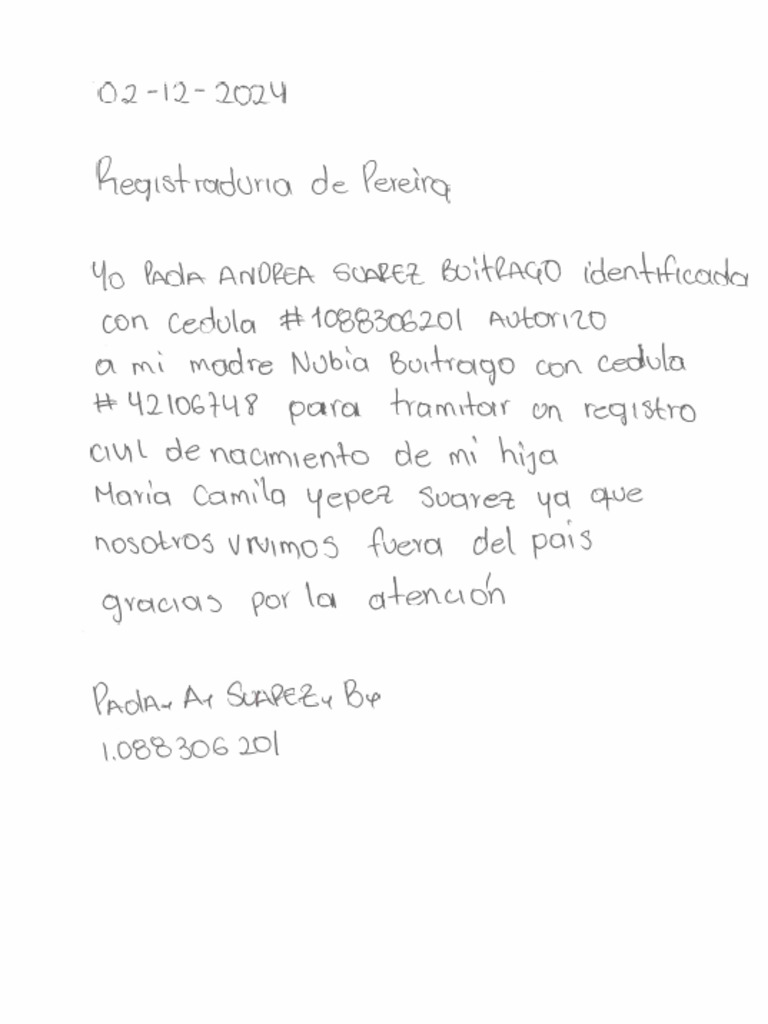 02-12-2024
Registraduria de Pereira
Yo PAOLA ANDREA SUAREZ BUITRAGO identificada
con cedula #1088306201 AUTORIZO
a mi madre Nubia Buitrago con cedula
#42106748 para tramitar un registro
civil de nacimiento de mi hija
Maria Camila Yepez Suarez ya que
nosotros vivimos fuera del pais
gracias por la atención
PAOLA A SUAREZ B
1.088 306 201